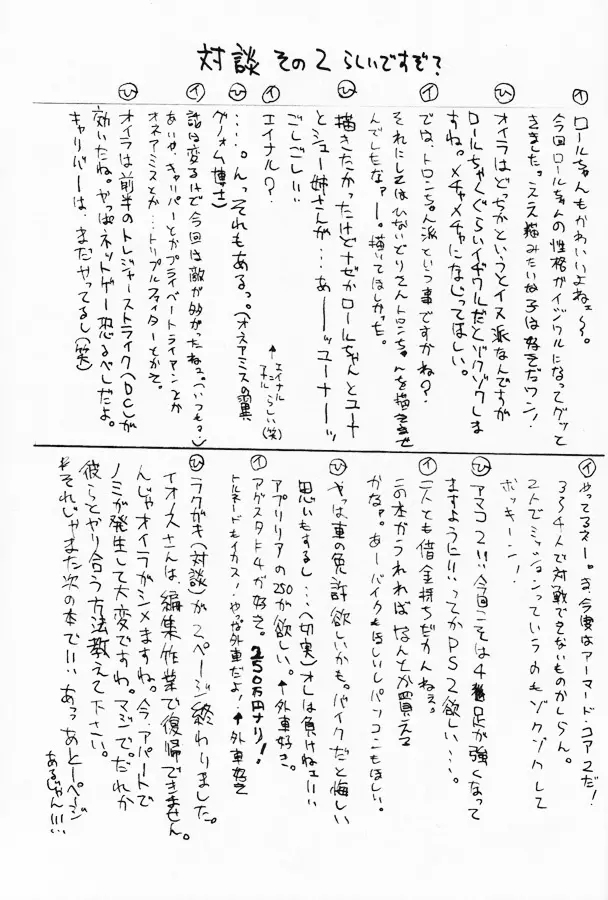 対談 その2 らしいですぞ?
イ ロールちゃんもかわいいよねェ〜〜。
今回ロールちゃんの性格がイジワルになってグッと
きました。ええ描みたいな子は好きだワン!
ひ オイラはどっちかというとイヌ派なんですが
ロールちゃんぐらいイヂワルだとゾクゾクしま
すね。メチャメチャにないってほしい。
イ では、トロンちゃん派という事ですかね?
それにしてはひないどりさんトロンちゃんを描きませ
んでしたなァー。描いてほしかった。
ひ 描きたかったけどナゼかロールちゃんとユーナ
とシュー姉さんが・・・あ———ッユーナ———ッ
ごしごしい
イ エイナル?
↑エイナル らしい(笑)
ひ ・・・。んっそれもあるっ。(オネアミスの翼
グノォム博士)
イ 話は変るけど今回は敵が多かったねっ。(いつもっ?)
あいや、キャリバーとかプライベートライアンとか
オネアミスとか・・・トリプルファイターとかさ。
ひ オイラは前半のトレジャーストライク(DC)が
効いたね。やっぱネットゲー恐るべしだよ。
キャリバーは、まだやってるし(笑)
イ やってるネー。さ、今度はアーマード・コア2だ!
3〜4人で対戦できないものかしらん。
2人でミッションっていうのもゾクゾクして
ボッキーン!
ひ アマコア2!!今回こそは4脚足が強くなって
ますように!!ってかPS2欲しい・・・。
イ 二人とも借金持ちだかんねェ。
この本がうれればなんとか買える
かなァ。あーバイクもほしいしパソコンもほしい。
ひ やっぱ車の免許欲しいかも。バイクだと悔しい
思いもするし・・・(切実)オレは負けねェ!!
アプリリアの250が欲しい。↑外車好き。
イ アグスタF4が好き。250万円ナリ!
トルネードもイカス!やな外車だよ!↑外車好き
ひ ラクガキ(対談)が2ページ終わりました。
イオヌスさんは、編集作業で復帰できません。
んじゃオイラがシメますね。今、アパートで
ノミが発生して大変ですね。マジで。だれか
彼らとやり合う方法教えて下さい。
#それじゃまた次の本で!!あっあと一ページ
あるじゃん!!!